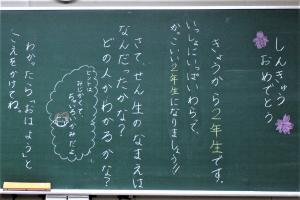 しんきゅう
おめでとう
きょうから２年生です。
いっしょにいっぱいわらって、
かっこいい２年生になりましょう!!
さて、せん生のなまえは
なんだったかな？
どの人かわかるかな？
ヒントは
みじかくて、
ちゃいろいかみだよ
わかったら「おはよう」と
こえをかけてね。